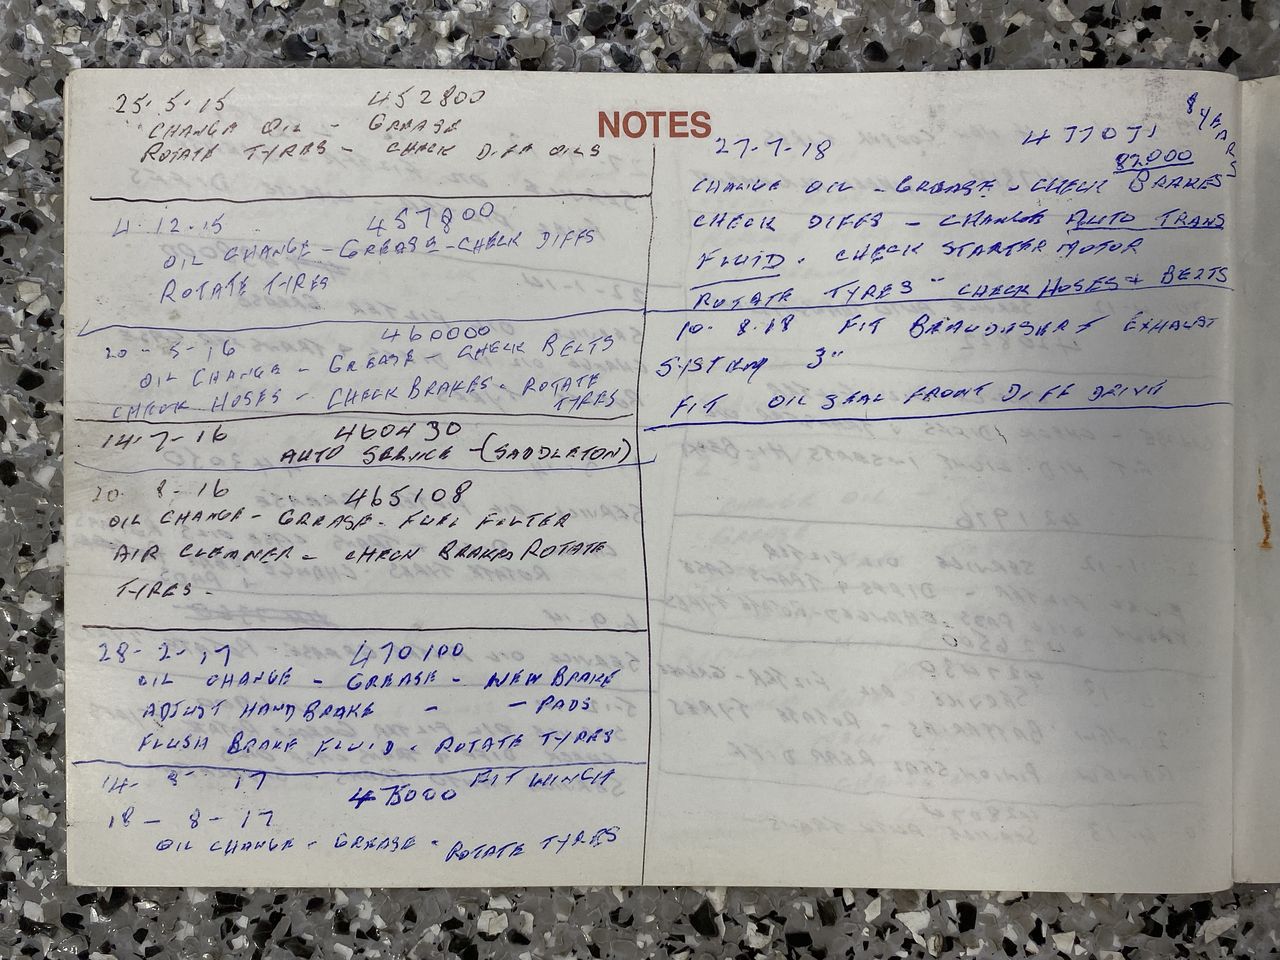 NOTES
25.5.15 452800
CHANGE OIL - GREASE
ROTATE TYRES - CHECK DIFF OILS
4.12.15 457800
OIL CHANGE - GREASE - CHECK DIFFS
ROTATE TYRES
20-5-16 460000
OIL CHANGE - GREASE - CHECK BELTS
CHECK HOSES - CHECK BRAKES - ROTATE
TYRES
14-7-16 460430
AUTO SERVICE - (SADDLETON)
20-8-16 465108
OIL CHANGE - GREASE - FUEL FILTER
AIR CLEANER - CHECK BRAKES ROTATE
TYRES -
28-2-17 470100
OIL CHANGE - GREASE - NEW BRAKE
ADJUST HANDBRAKE - - PADS
FLUSH BRAKE FLUID - ROTATE TYRES
14- 17 FIT WINCH
475000
18-8-17
OIL CHANGE - GREASE - ROTATE TYRES
8 YEARS
27-7-18 477071
82000
CHANGE OIL - GREASE - CHECK BRAKES
CHECK DIFFS - CHANGE AUTO TRANS
FLUID. CHECK STARTER MOTOR
ROTATE TYRES - CHECK HOSES + BELTS
10.8.18 FIT EXHAUST
SYSTEM 3"
FIT OIL SEAL FRONT DIFF DRIVE